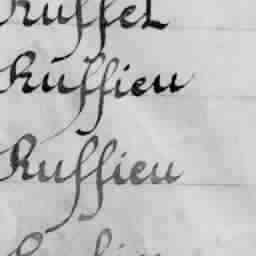 Ruffet
Ruffieu
Ruffieu